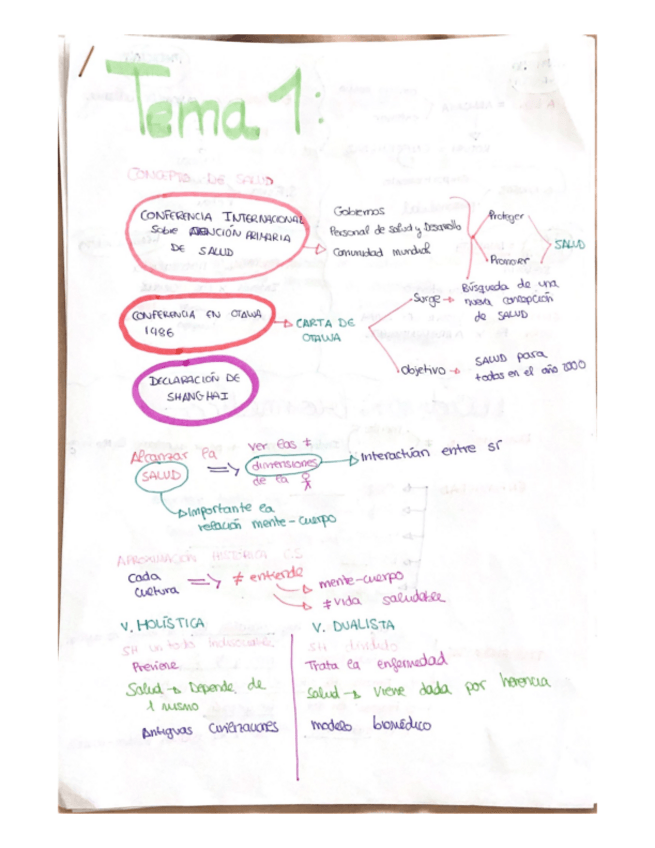 Tema 1:
CONCEPTO DE SALUD
CONFERENCIA INTERNACIONAL
sobre ATENCIÓN PRIMARIA
DE SALUD
Gobiernos
Personal de salud y Desarrollo
Comunidad mundial
Proteger
Promover
SALUD
CONFERENCIA EN OTAWA
1986
CARTA DE
OTAWA
Surge → Búsqueda de una
nueva concepción
de SALUD
Objetivo → SALUD para
todos en el año 2000
DECLARACIÓN DE
SHANGHAI
Alcanzar la
SALUD
ver las ≠
dimensiones
de la
Interactúan entre sí
Importante la
relación mente-cuerpo
APROXIMACIÓN HISTÓRICA
Cada
cultura
≠ entiende
mente-cuerpo
≠ vida saludable
V. HOLÍSTICA
SH un todo indivisible
Previene
Salud → Depende de
1 mismo
Antiguas civilizaciones
V. DUALISTA
SH dividido
Trata la enfermedad
Salud → viene dada por herencia
modelo biomédico